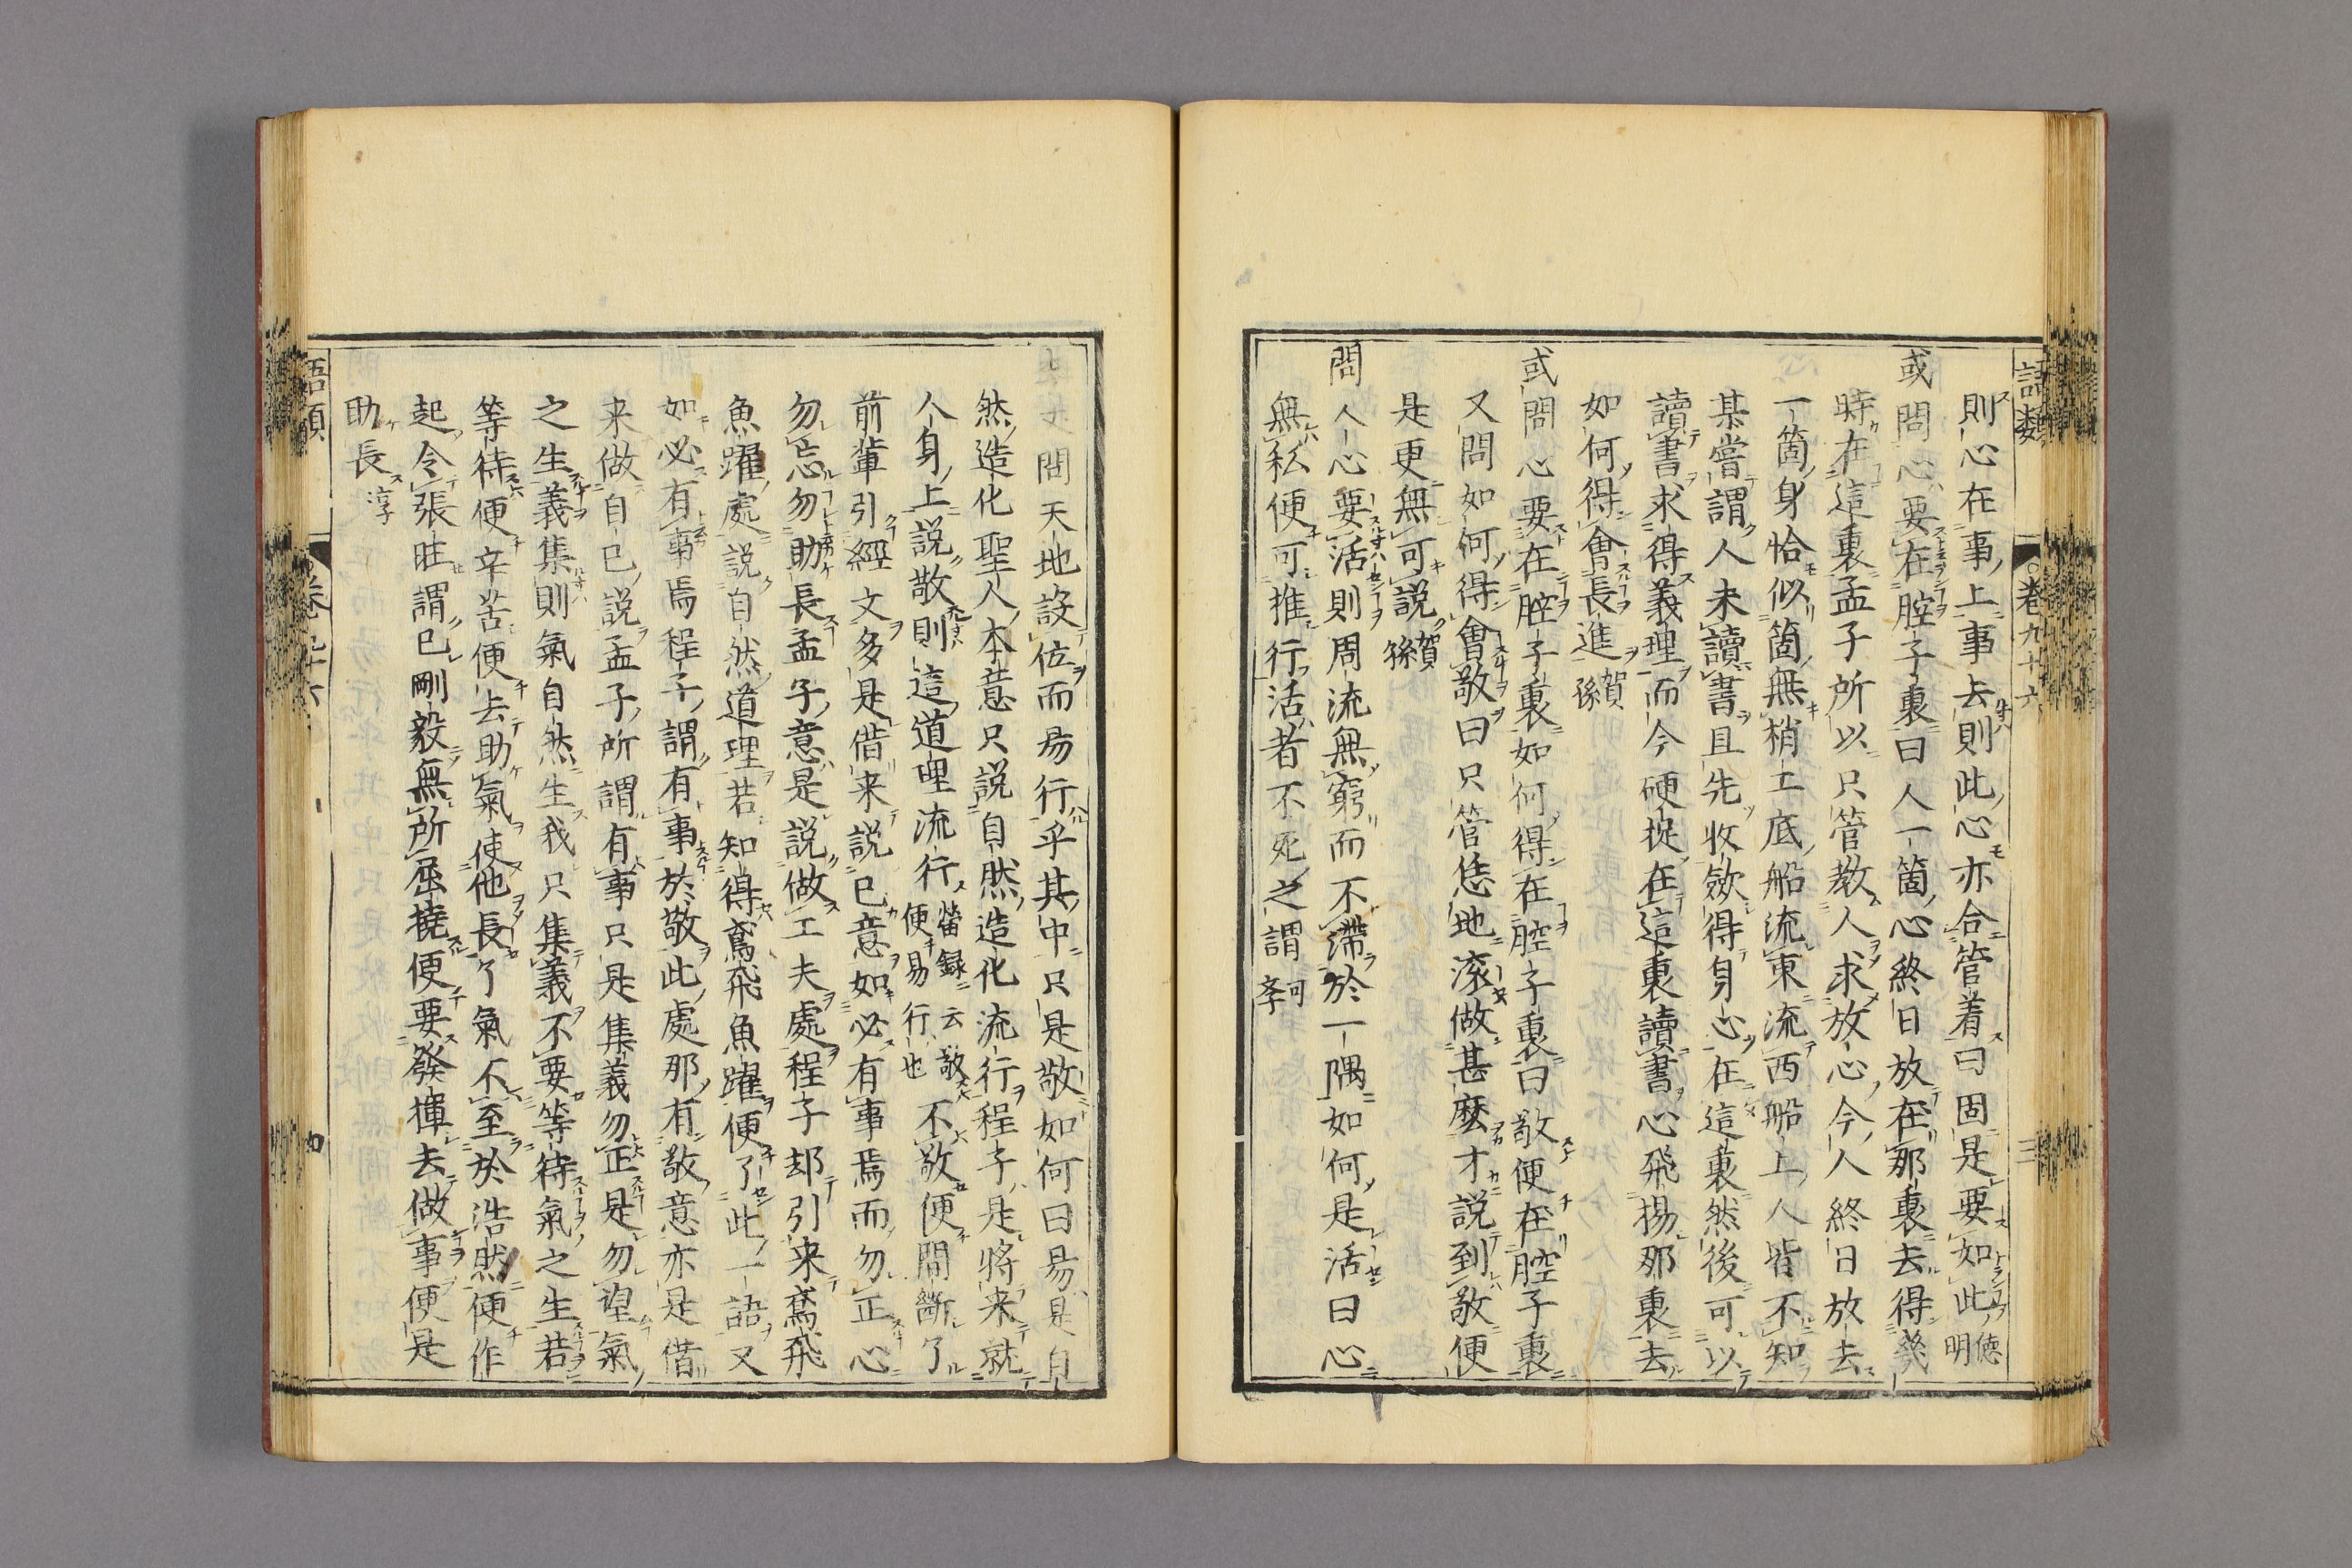 語類
卷九十六
三
則心在事上事去則此心亦合管着曰固是要如此德明
或問心要在腔子裏曰人一箇心終日放在那裏去得幾
時在這裏孟子所以只管教人求放心今人終日放去
一箇身恰似箇無梢工底船流東流西船上人皆不知
某嘗謂人未讀書且先收斂得身心在這裏然後可以
讀書求得義理而今硬捉在這裏讀書心飛揚那裏去
如何得會長進賀孫
或問心要在腔子裏如何得在腔子裏曰敬便在腔子裏
又問如何得會敬曰只管恁地滚做甚麽才説到敬便
是更無可説賀孫
問人心要活則周流無窮而不滯於一隅如何是活曰心
無私便可推行活者不死之謂可學
問天地設位而易行乎其中只是敬如何曰易是自
然造化聖人本意只説自然造化流行程子是將来就
人身上説敬則這道理流行不敬便間斷了
螢録云敬便易行也
前輩引經文多是借来説已意如必有事焉而勿正心
勿忘勿助長孟子意是説做工夫處程子却引来鳶飛
魚躍處説自然道理若知得鳶飛魚躍便了此一語又
如必有事焉程子謂有事於敬此處那有敬意亦是借
来做自已説孟子所謂有事只是集義勿正是勿望氣
之生義集則氣自然生我只集義不要等待氣之生若
等待便辛苦便去助氣使他長了氣不至於浩然便作
起令張旺謂已剛毅無所屈撓便要發揮去做事便是
助長淳
語類
卷九十六